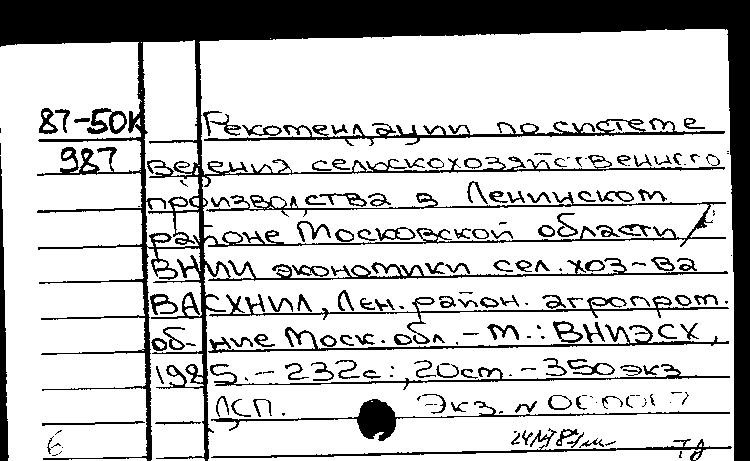 87-50К Рекомендации по системе
987 ведения сельскохозяйственного
производства в Ленинском
районе Московской области /
ВНИИ экономики сел. хоз-ва
ВАСХНИЛ, Лен. район. агропром.
об-ние Моск. обл. - М.: ВНИЭСХ,
1985. - 232с.; 20см. - 350экз
ДСП. Экз. N 000017
6